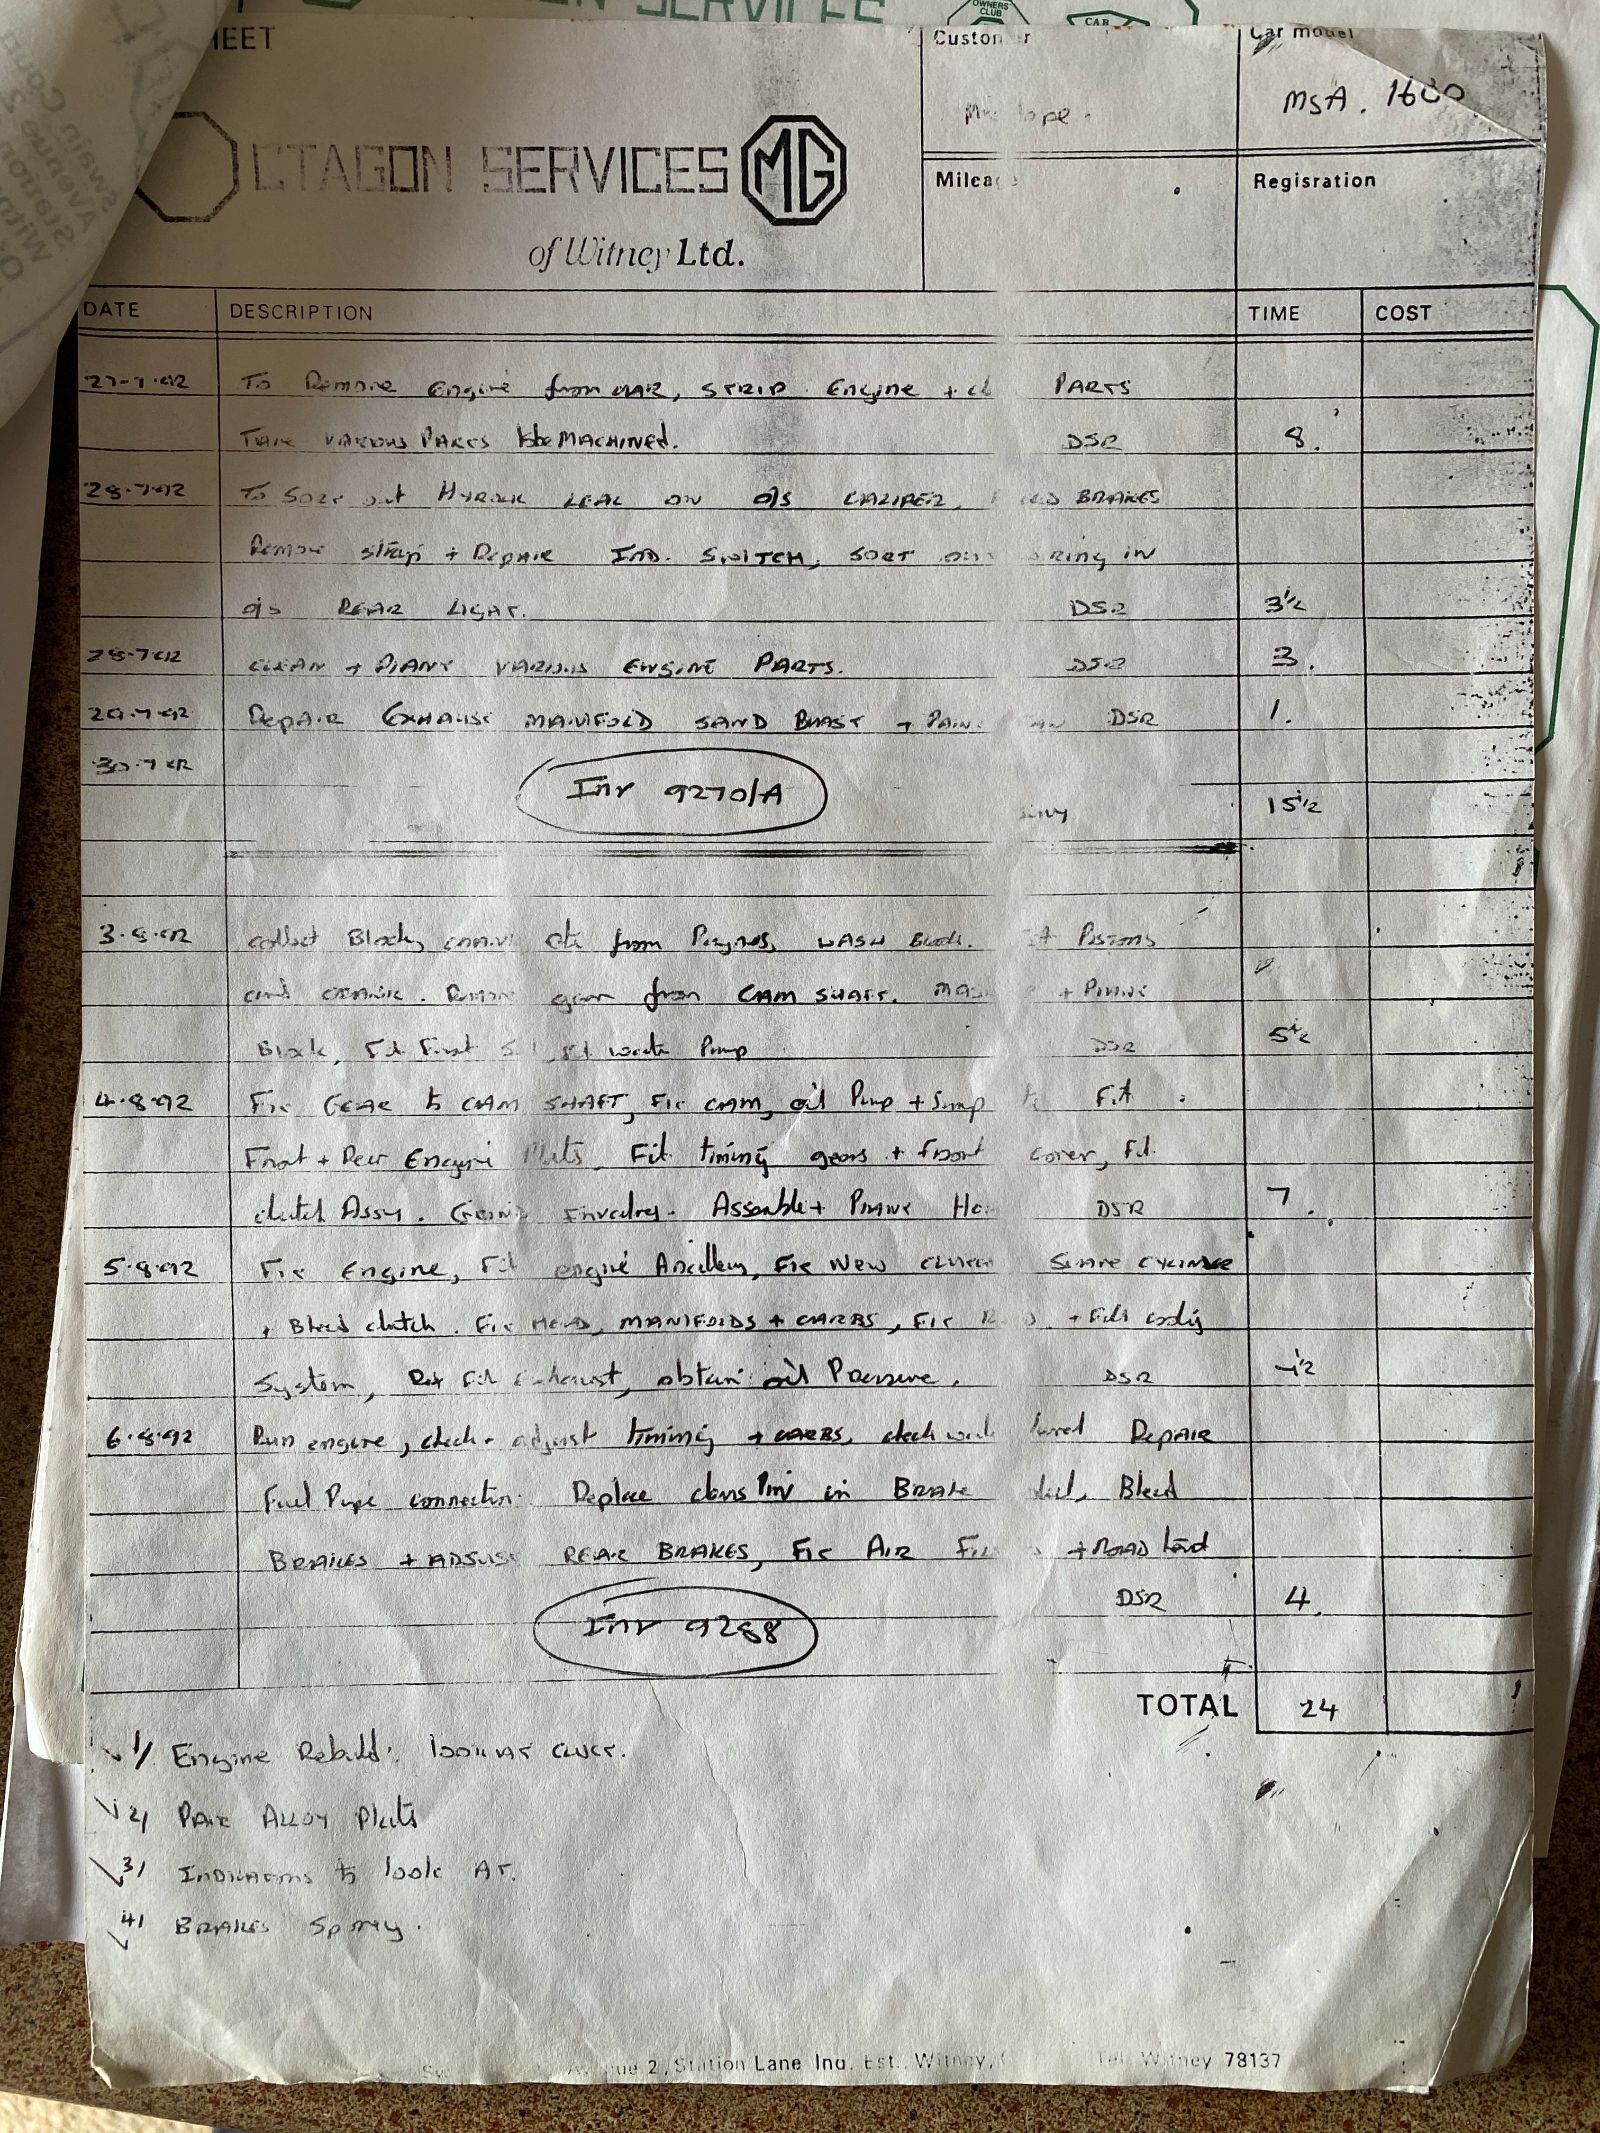 ON SERVICES
OWNERS
CLUB
CAR
HEET
Customer
Car model
MGA. 1600
OCTAGON SERVICES MG
of Witney Ltd.
Mileage
Regisration
DATE DESCRIPTION TIME COST
27-7-92 To Remove Engine from CAR, STRIP Engine + PARTS
TAKE VARIOUS PARTS to be MACHINED. DSR 8.
28-7-92 To Sort out LEAK ON O/S CALIPER, BRAKES
Remove strip + Repair IND. SWITCH, SORT out wiring in
O/S REAR LIGHT. DSR 3½
28-7-92 CLEAN + PAINT VARIOUS ENGINE PARTS. DSR 3.
29-7-92 Repair EXHAUST MANIFOLD SAND BLAST + PAINT DSR 1.
30-7-92
Inv 9270/A
15½
3-8-92 collect Block, etc from WASH Block. Fit PISTONS
and CRANK. Remove gear from CAM SHAFT. MASK + PAINT
Block, Fit Front Fit water Pump DSR 5½
4-8-92 Fit GEAR to CAM SHAFT, Fit CAM, oil Pump + Sump Fit
Front + Rear Engine Plates. Fit timing gears + front cover, Fit
clutch Assy. Assemble + PAINT DSR 7.
5-8-92 Fit Engine, Fit engine Ancillery, Fit New CLUTCH CYLINDER
+ Bleed clutch. Fit HEAD, MANIFOLDS + CARBS, Fit + Fill cooling
System, Fit Exhaust, obtain oil Pressure. DSR
6-8-92 Run engine, check + adjust timing + CARBS, check water level Repair
Fuel Pipe connection. Replace clevis Pin in BRAKE Bleed
BRAKES + ADJUST REAR BRAKES, Fit AIR + ROAD test
DSR 4.
Inv 9288
TOTAL 24
1/ Engine Rebuild. look at
2/ PAIR ALLOY Plates
3/ INDICATORS to look AT.
4/ BRAKES Spongy.
Avenue 2, Station Lane Ind. Est., Witney, Tel. Witney 78137